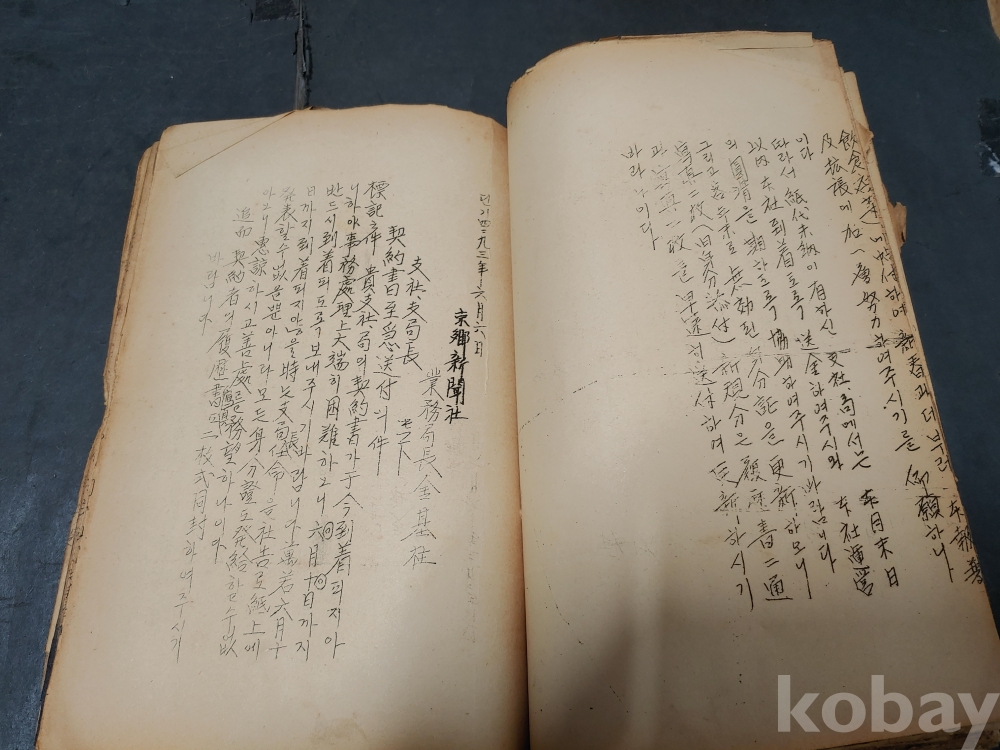 及拡張에 加一層努力하여주시기를 仰願하나
이다
따라서 紙代未納이 有하신 支社局에서는 本月末日
以內 本社到着토록 送金하여주시와 本社運営
의 圓滑을 期하도록 協助하여주시기바랍니다
그리고 客年末로 無効된 身分証을 更新하오니
寫真二枚(旧身分証添付) 新規分은 履歴書二通
과 寫真二枚를 早速히 送付하여 更新하시기
바라나이다
단기四二九三年六月六日
京鄕新聞社
業務局長 金基柱
支社、支局長 貴下
契約書至急送付의件
標記件 貴支社局의 契約書가 于今到着되지아
니하야 事務處理上大端히困難하오니 六月十日까지
반드시到着되도록보내주시기바랍니다 萬若六月十
日까지到着되지안을時는支局長任命을社告로紙上에
發表할수없을뿐아니라모든身分證도發給할수없
아오니 惠諒하시고善處를務望하나이다
追而 契約者의履歷書二枚式同封하여주시기
바랍니다
kobay